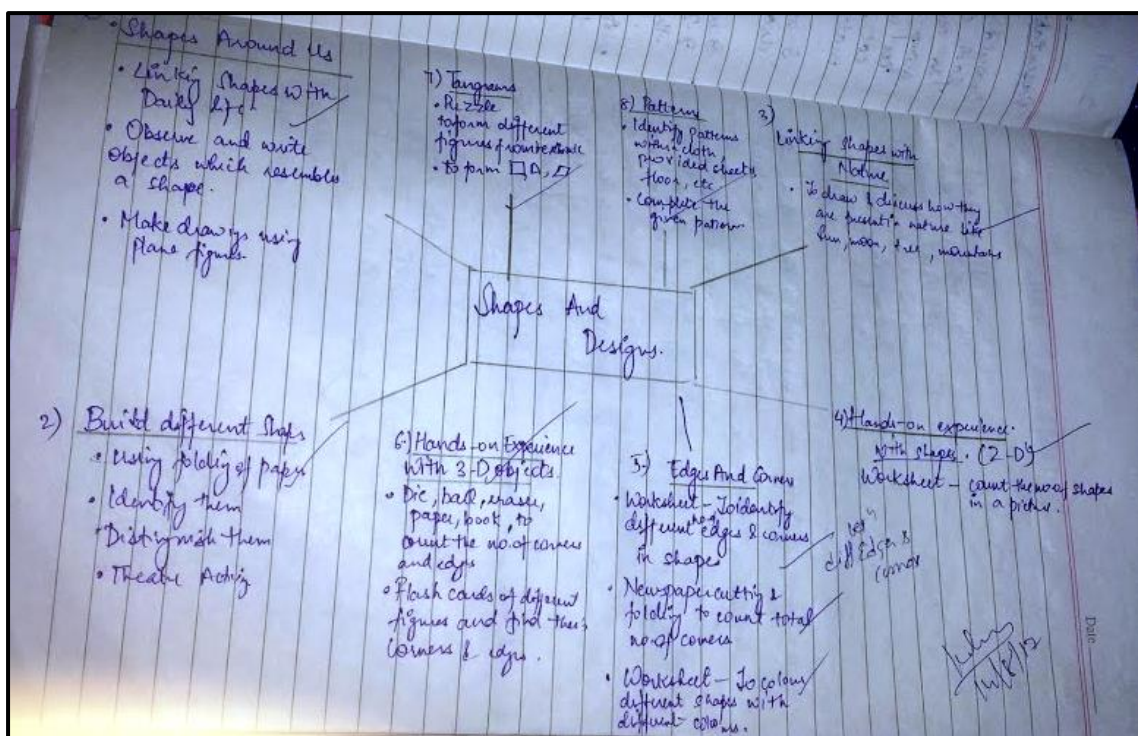 Shapes Around Us
• Linking Shapes with
Daily life
• Observe and write
objects which resembles
a shape.
• Make drawings using
plane figures.
7) Tangrams
• Puzzle
to form different
figures from
• to form
8) Patterns
• Identify patterns
within cloth
provided sheets
floor, etc
• Complete the
given pattern
3)
Linking Shapes with
Nature
• To draw & discuss how they
are present in nature like
Sun, moon, tree, mountains
Shapes And
Designs.
2) Build different Shaps
• Using folding of paper
• Identify them
• Distinguish them
• Theatre Acting
6.) Hands-on Experience
with 3-D objects.
• Die, ball, eraser,
paper, book, to
count the no. of corners
and edges
• Flash cards of different
figures and find their
corners & edges.
5.) Edges And Corners
• Worksheet - To identify
different no. of edges & corners
in shapes
• Newspaper cutting &
folding to count total
no. of corners
• Worksheet - To colour
different shapes with
different colours.
4) Hands-on experience.
with shapes. (2-D)
Worksheet - count the no. of shapes
in a picture.
diff Edges &
corner
14/8/12
Date